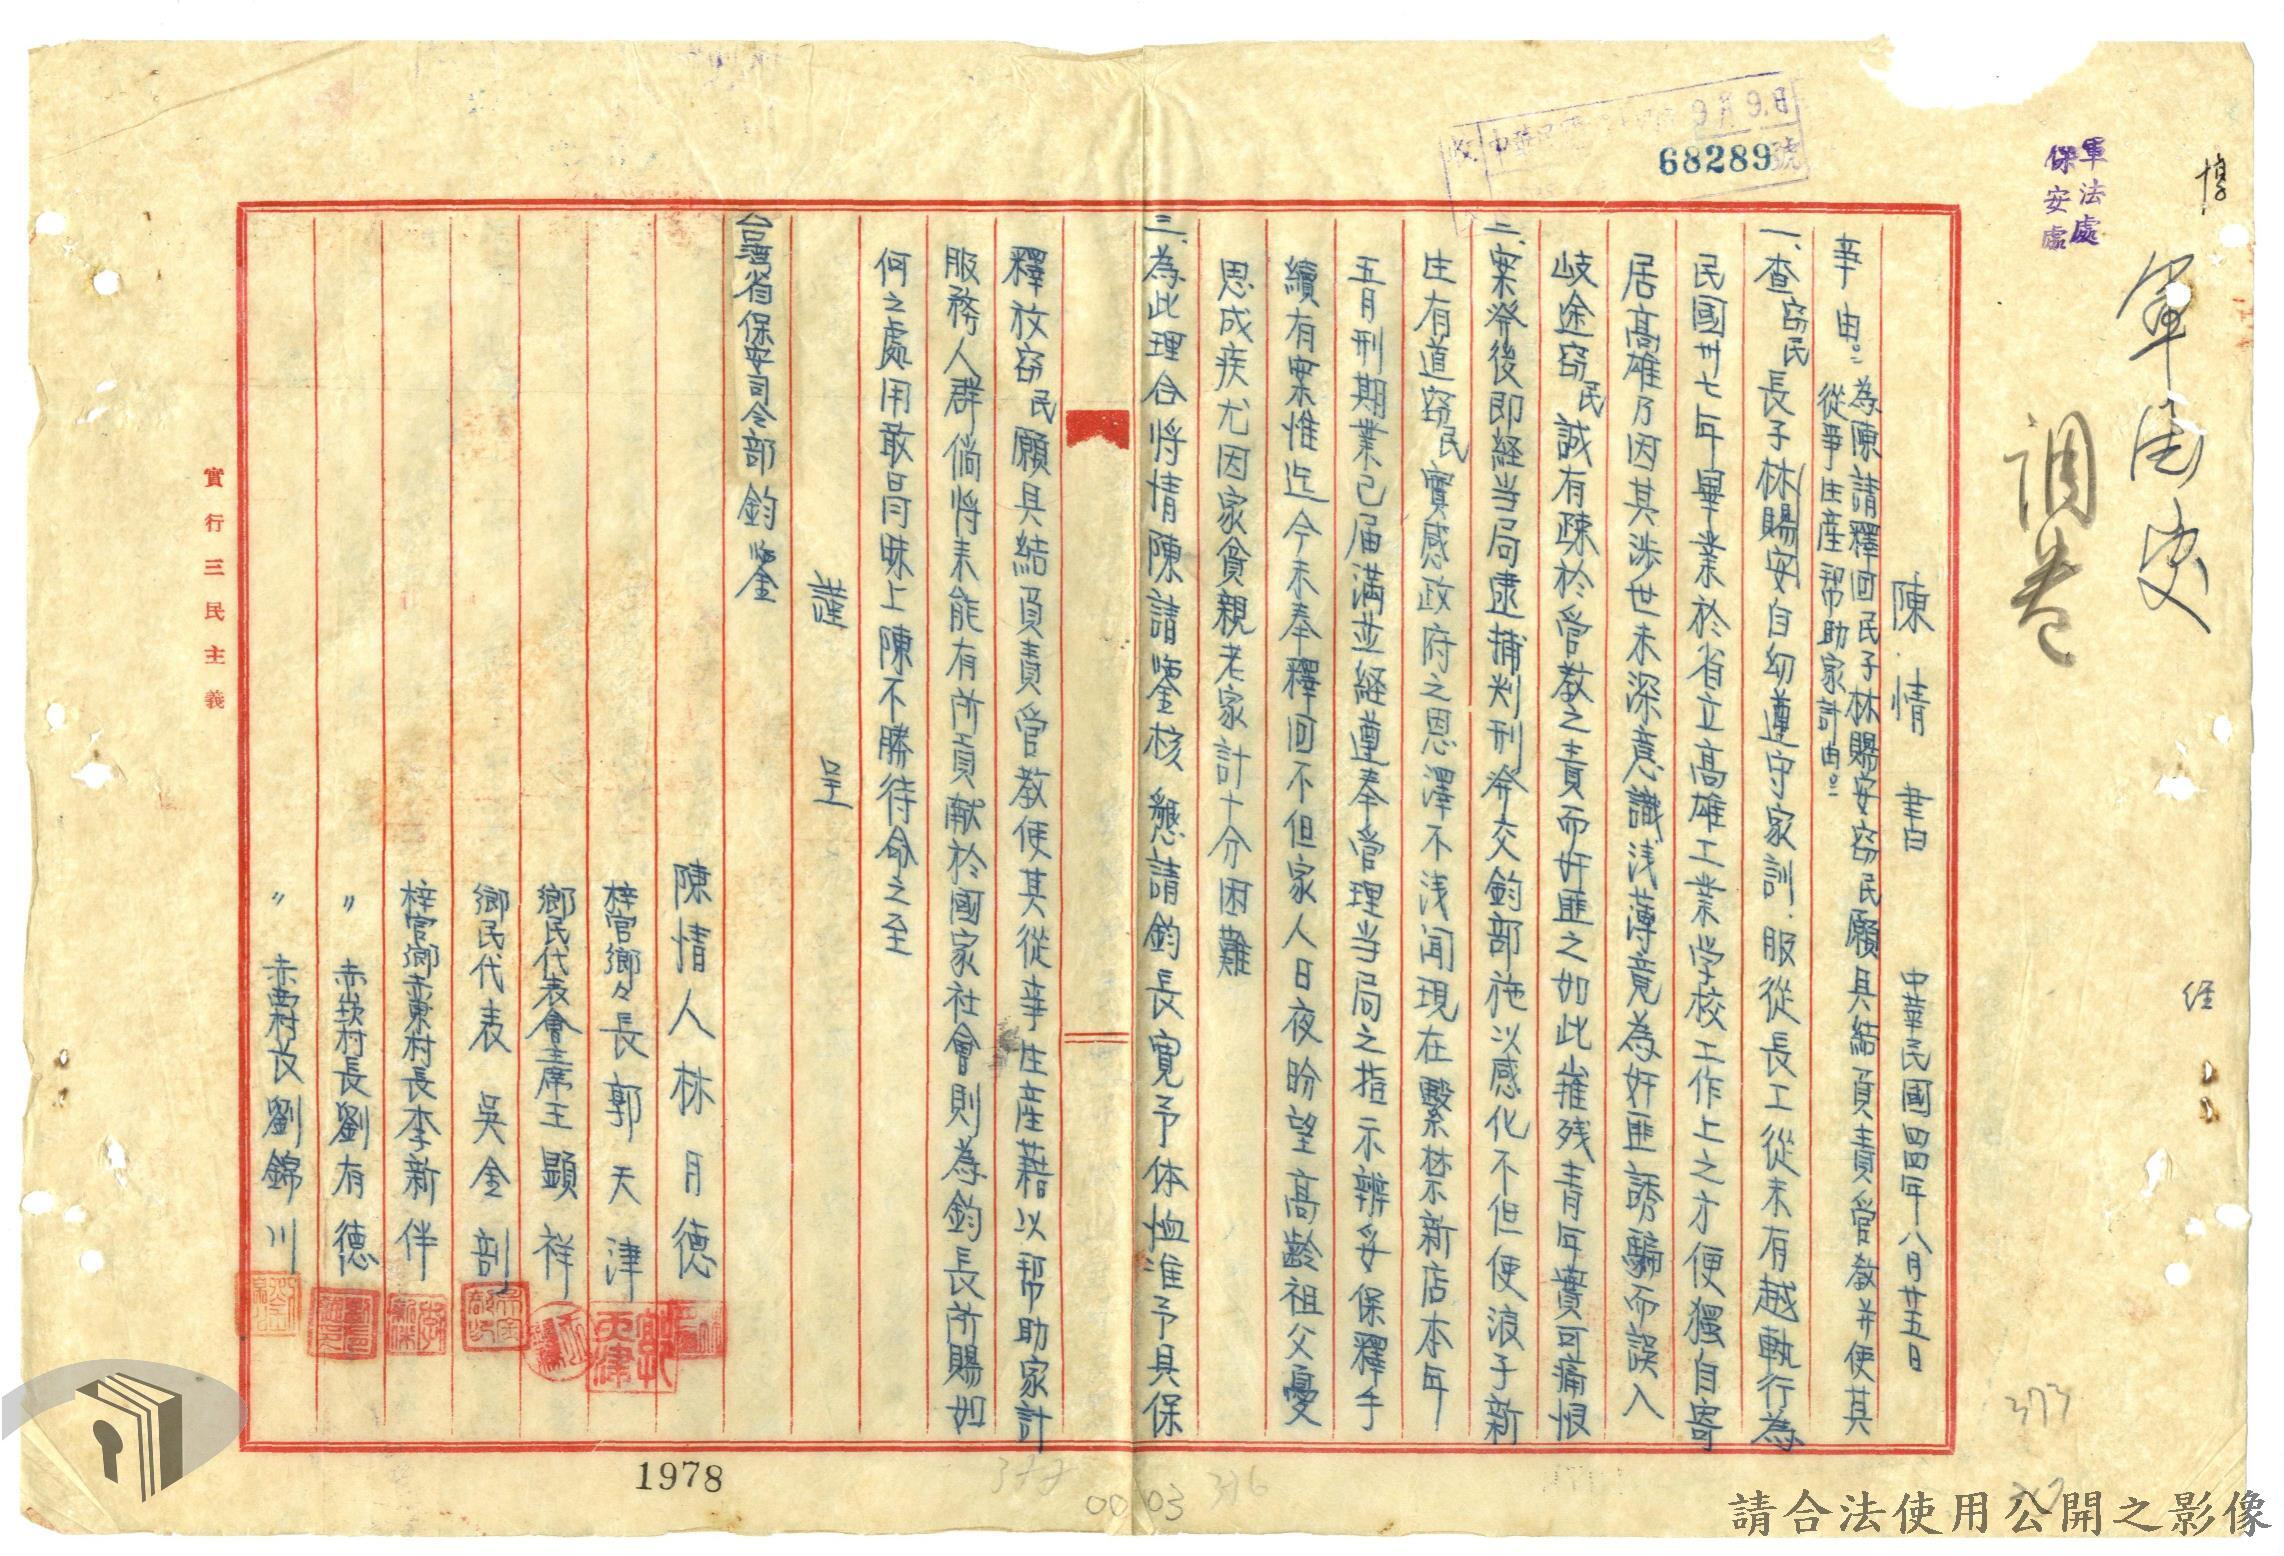 惇
軍法處
保安處
調卷
经
收 中華民國 9月9日
68289 號
陳情書 中華民國四四年八月廿五日
事由：為陳請釋回民子林賜安窃民願具結負責管教并使其
從事生産帮助家計由：
一、查窃民長子林賜安自幼遵守家訓、服從長工從未有越軌行為
民國卅七年畢業於省立高雄工業学校工作上之才便獨自寄
居高雄乃因其涉世未深意識浅薄竟為奸匪誘騙而誤入
岐途窃民誠有疎於管教之責而奸匪之如此摧残青年實可痛恨
二、案発後即経当局逮捕判刑発交鈞部施以感化不但使浪子新
生有道窃民實感政府之恩澤不浅闻現在繫禁新店本年
五月刑期業已届满並経遵奉管理当局之指示辦妥保釋手
續有案惟迄今未奉釋回不但家人日夜盼望高齡祖父憂
思成疾尤因家貧親老家計十分困難
三、為此理合将情陳請鑒核懇請鈞長寬予体恤准予具保
釋放窃民願具結負責管教使其從事生産藉以帮助家計
服務人群倘将来能有所貢献於國家社會則為鈞長所賜如
何之處用敢冒昧上陳不勝待命之至
謹呈
台湾省保安司令部鈞鑒
陳情人林月德
梓官鄉々長郭天津
鄉民代表會主席王顕祥
鄉民代表吳金剖
梓官鄉赤東村長李新伴
〃赤崁村長劉有德
〃赤西村長劉錦川
實行三民主義
1978
377
376
0003
373
請合法使用公開之影像